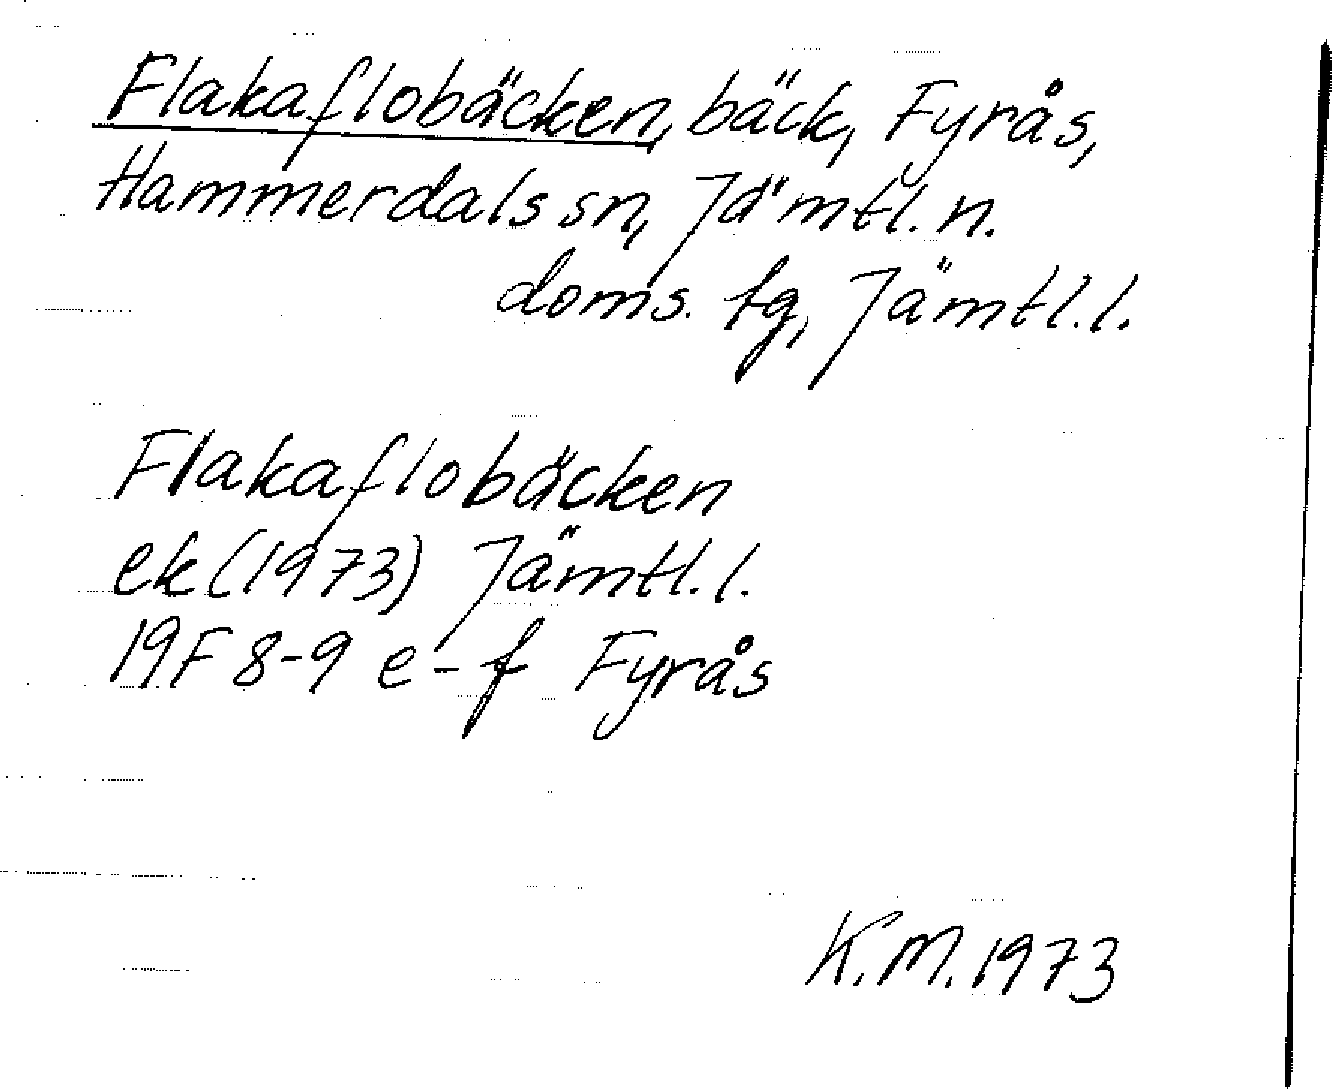 Flakaflobäcken, bäck, Fyrås,
Hammerdals sn, Jämtl. n.
doms. fg, Jämtl. l.
Flakaflobäcken
ek (1973) Jämtl. l.
19F 8-9 e-f Fyrås
K.M. 1973